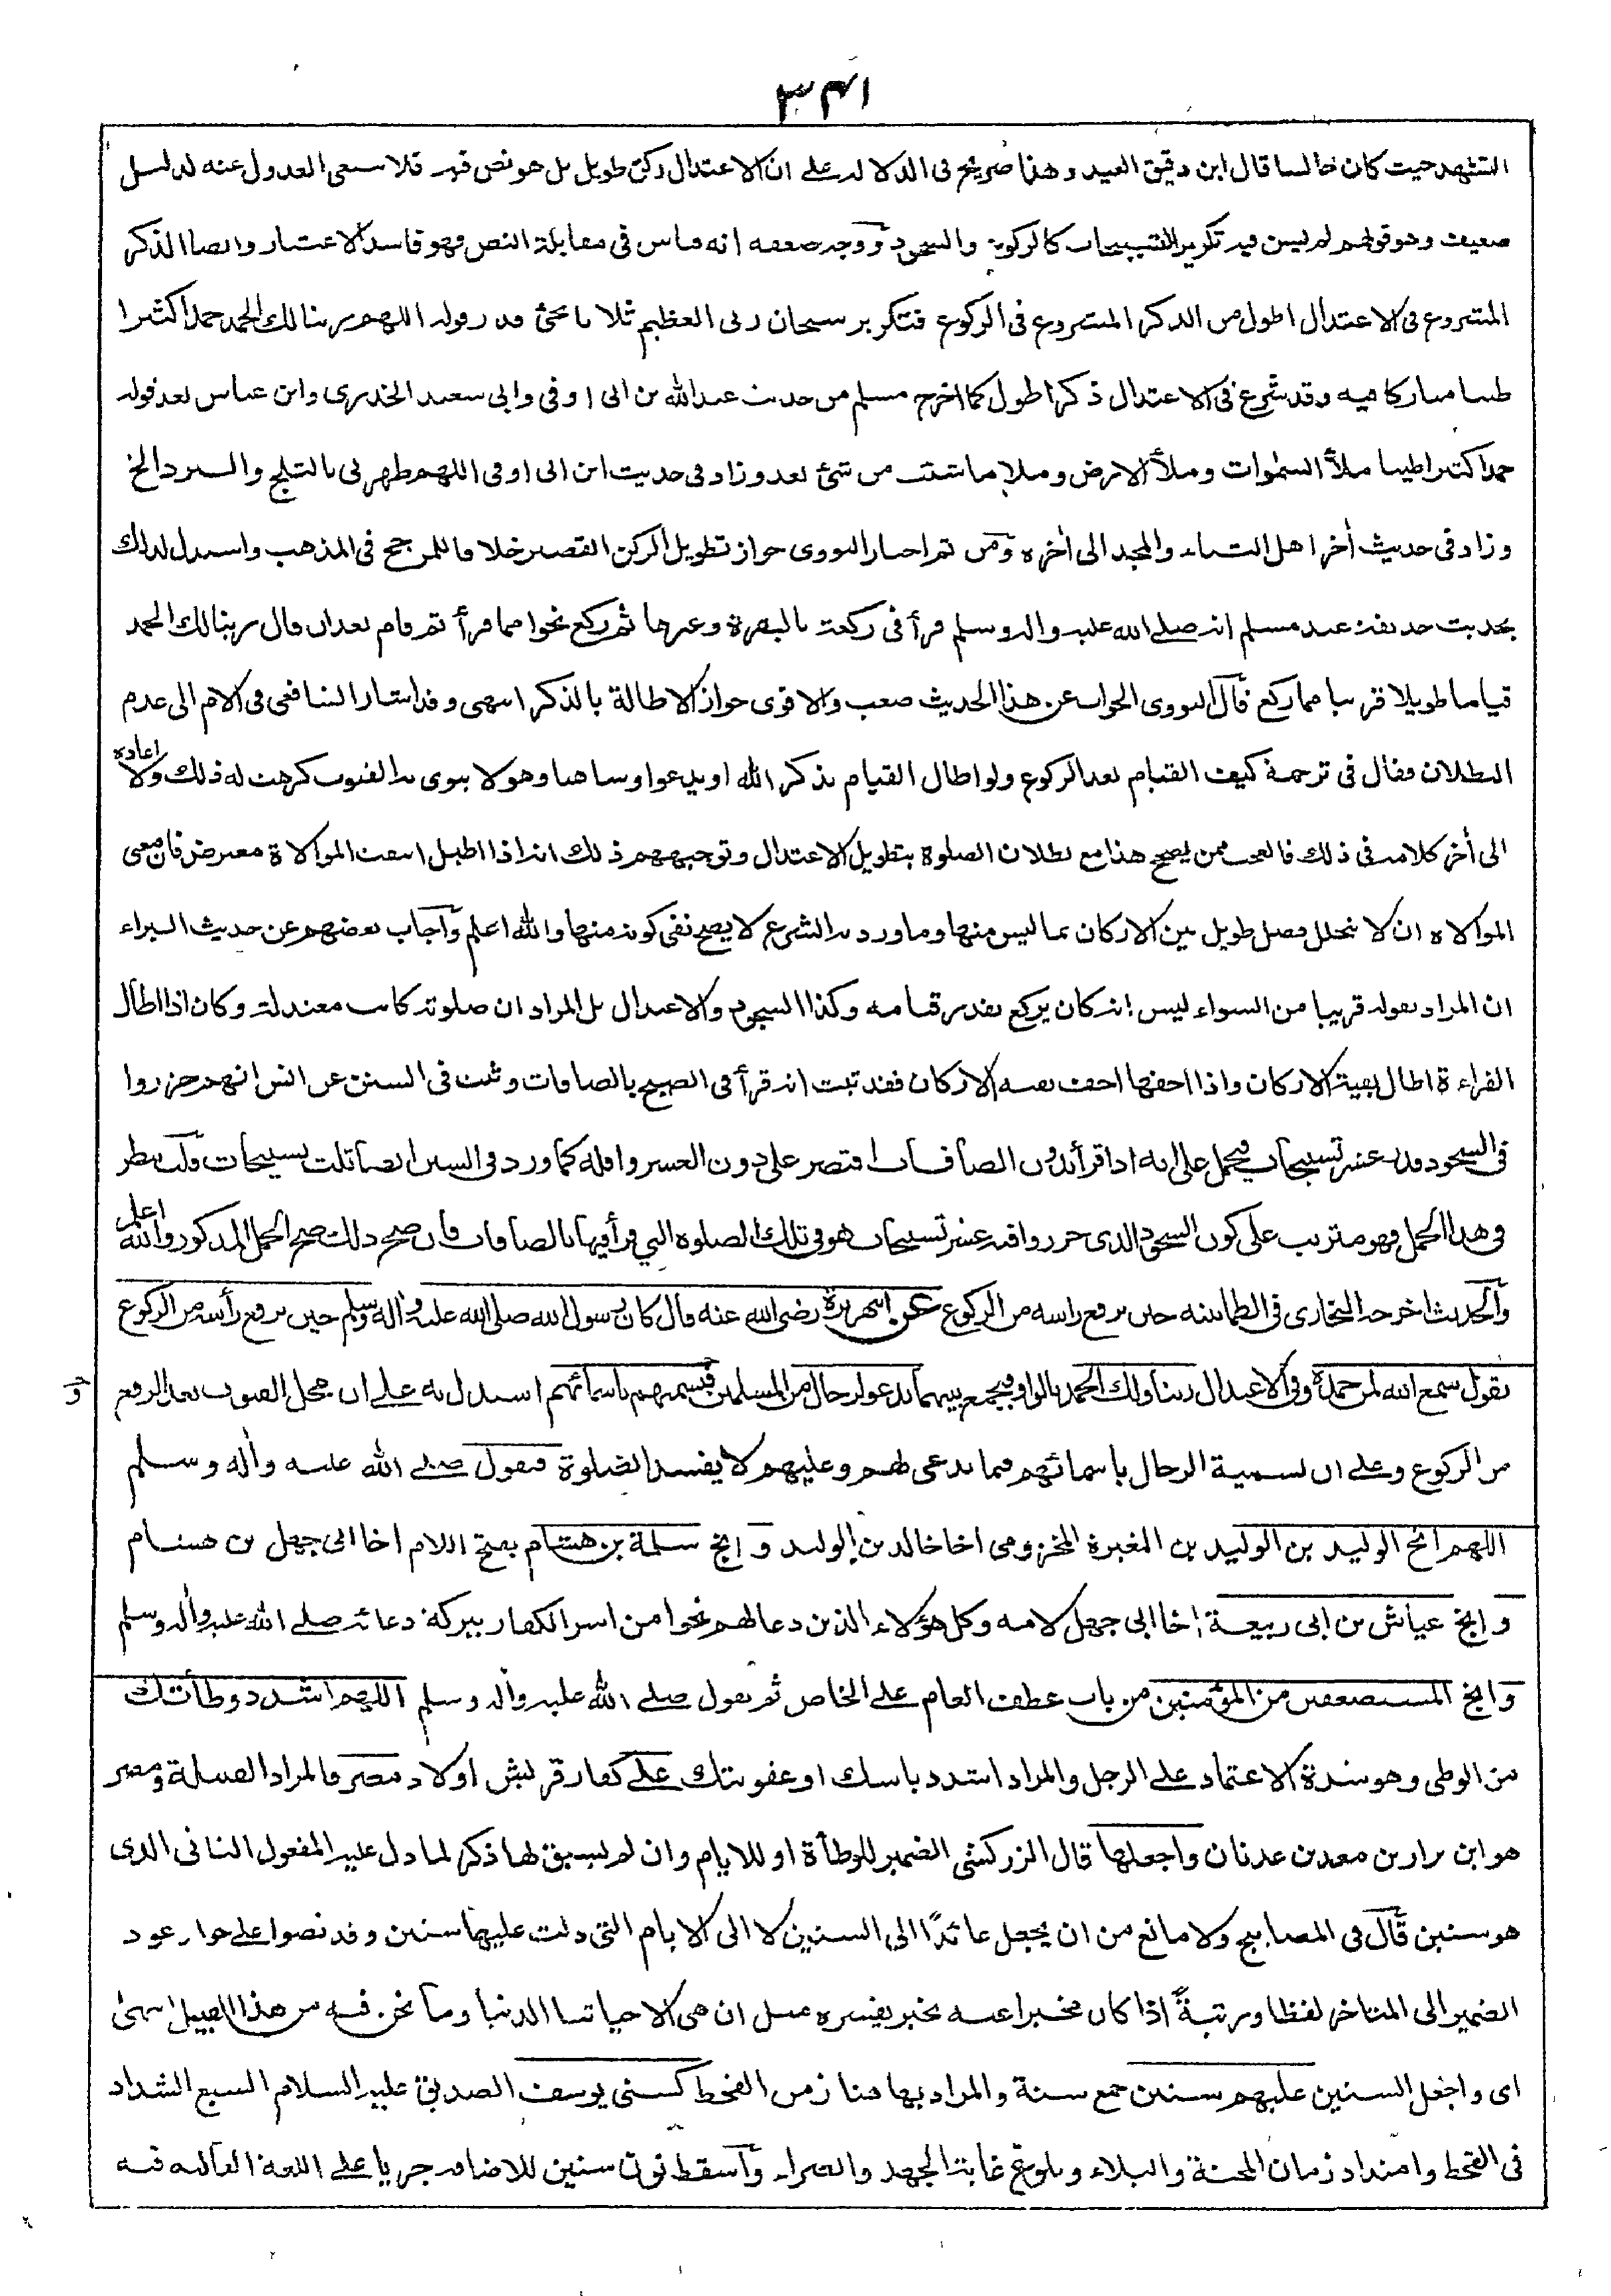 ٣٤١
التشهد حيث كان جالسا قال ابن دقيق العيد وهذا صريح فى الدلالة على ان الاعتدال ركن طويل بل هو نص فيه فلا ينبغى العدول عنه لدليل
ضعيف وهو قولهم لم يسن فيه تكرير التسبيحات كالركوع والسجود ووجه ضعفه انه قياس فى مقابلة النص فهو فاسد الاعتبار وايضا الذكر
المشروع فى الاعتدال اطول من الذكر المشروع فى الركوع فتكرير سبحان ربى العظيم ثلاثا يجئ قدر قوله اللهم ربنا لك الحمد حمدا كثيرا
طيبا مباركا فيه وقد شرع فى الاعتدال ذكر اطول كما اخرج مسلم من حديث عبد الله بن ابى اوفى وابى سعيد الخدرى وابن عباس بعد قوله
حمدا كثيرا طيبا ملأ السموات وملأ الارض وملأ ما شئت من شئ بعد وزاد فى حديث ابن ابى اوفى اللهم طهرنى بالثلج والبرد الخ
وزاد فى حديث أخر اهل الثناء والمجد الى أخره ومن ثم اختار النووى جواز تطويل الركن القصير خلافا للمرجح فى المذهب واستدل لذلك
بحديث حذيفة عند مسلم انه صلى الله عليه واله وسلم قرأ فى ركعة بالبقرة وغيرها ثم ركع نحوا مما قرأ ثم قام بعد ان قال ربنا لك الحمد
قياما طويلا قريبا مما ركع قال النووى الجواب عن هذا الحديث صعب والاقوى جواز الاطالة بالذكر انتهى وقد اشار الشافعى فى الام الى عدم
البطلان فقال فى ترجمة كيف القيام بعد الركوع ولو اطال القيام بذكر الله او يدعوا وساهيا وهو لا ينوى به القنوت كرهت له ذلك ولا اعادة
الى أخر كلامه فى ذلك فالعجب ممن يصحح هذا مع بطلان الصلوة بتطويل الاعتدال وتوجيههم ذلك انه اذا اطيل انتفت الموالاة معترض فان معنى
الموالاة ان لا يتخلل فصل طويل بين الاركان بما ليس منها وما ورد به الشرع لا يصح نفى كونه منها والله اعلم وأجاب بعضهم عن حديث البراء
ان المراد بقوله قريبا من السواء ليس انه كان يركع بقدر قيامه وكذا السجود والاعتدال بل المراد ان صلوته كانت معتدلة وكان اذا اطال
القراءة اطال بقية الاركان واذا اخفها اخف بقية الاركان فقد ثبت انه قرأ فى الصبح بالصافات وثبت فى السنن عن انس انهم حزروا
فى السجود قدر عشر تسبيحات فيحمل على انه اذا قرأ بدون الصافات اقتصر على دون العشر واقله كما ورد فى السنن ايضا ثلث تسبيحات قلت ينظر
فى هذا الحمل فهو مترتب على كون السجود الذى حزروا فيه عشر تسبيحات هو فى تلك الصلوة التى قرأ فيها بالصافات فان صح ذلك صح الحمل المذكور والله اعلم
والحديث اخرجه البخارى فى الطمانينه حين يرفع راسه من الركوع عن ابى هريرة رضى الله عنه قال كان رسول الله صلى الله عليه واله وسلم حين يرفع رأسه من الركوع
يقول سمع الله لمن حمده وفى الاعتدال ربنا ولك الحمد بالواو فيجمع بينهما يدعو لرجال من المسلمين فيسميهم باسمائهم استدل به على ان محل القنوت بعد الرفع
من الركوع وعلى ان تسمية الرجال باسمائهم فيما يدعى لهم وعليهم لا يفسد الصلوة فيقول صلى الله عليه وأله وسلم
اللهم انج الوليد بن الوليد بن المغيرة المخزومى اخا خالد بن الوليد و انج سلمة بن هشام بفتح اللام اخا ابى جهل بن هشام
و انج عياش بن ابى ربيعة اخا ابى جهل لامه وكل هؤلاء الذين دعا لهم نجوا من اسر الكفار ببركة دعائه صلى الله عليه واله وسلم
و انج المستضعفين من المؤمنين من باب عطف العام على الخاص ثم يقول صلى الله عليه واله وسلم اللهم اشدد وطأتك
من الوطى وهو شدة الاعتماد على الرجل والمراد اشدد باسك او عقوبتك على كفار قريش اولاد مضر فالمراد القبيلة ومضر
هو ابن نزار بن معد بن عدنان واجعلها قال الزركشى الضمير للوطأة او للايام وان لم يسبق لها ذكر لما دل عليه المفعول الثانى الذى
هو سنين قال فى المصابيح ولا مانع من ان يجعل عائدا الى السنين لا الى الايام التى دلت عليها سنين وقد نصوا على جواز عود
الضمير الى المتاخر لفظا ورتبة اذا كان مخبرا عنه بخبر يفسره مثل ان هى الا حياتنا الدنيا وما نحن فيه من هذا القبيل انتهى
اى واجعل السنين عليهم سنين جمع سنة والمراد بها هنا زمن القحط كسنى يوسف الصديق عليه السلام السبع الشداد
فى القحط وامتداد زمان المحنة والبلاء وبلوغ غاية الجهد والضراء وأسقط نون سنين للاضافه جريا على اللغة الغالبه فيه